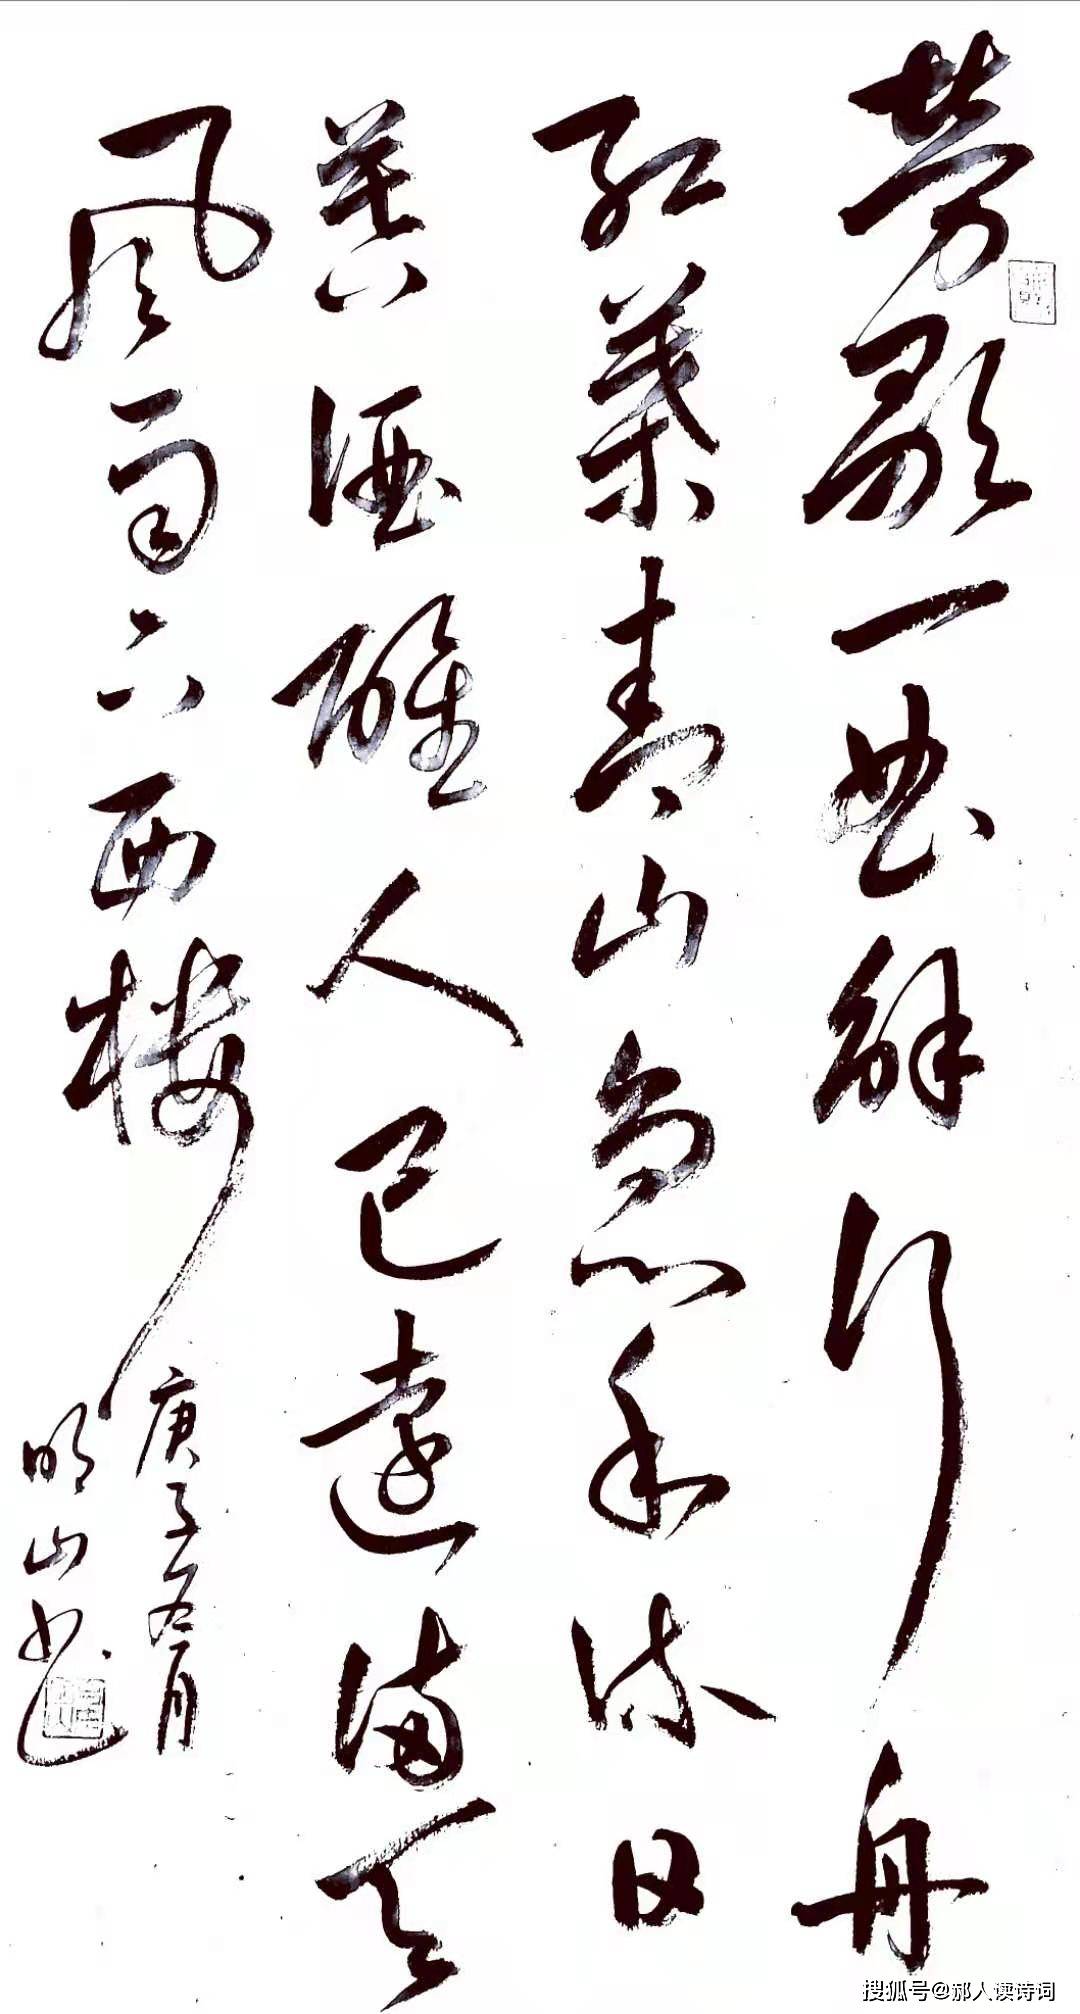 劳歌一曲解行舟
红葉青山急水流日
暮酒醒人已遠满天
风雨下西楼
庚子五月
明山书
搜狐号@郝人读诗词